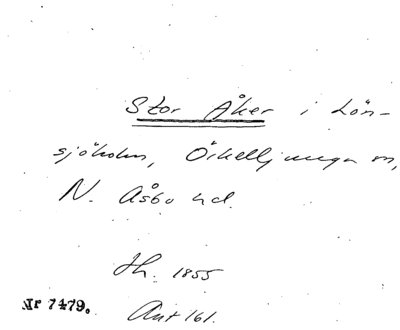 Stor Åker i Lön-
sjöholm, Örkelljunga sn,
N. Åsbo hd.
Jh. 1855
Nr 7479.
Ant 161.